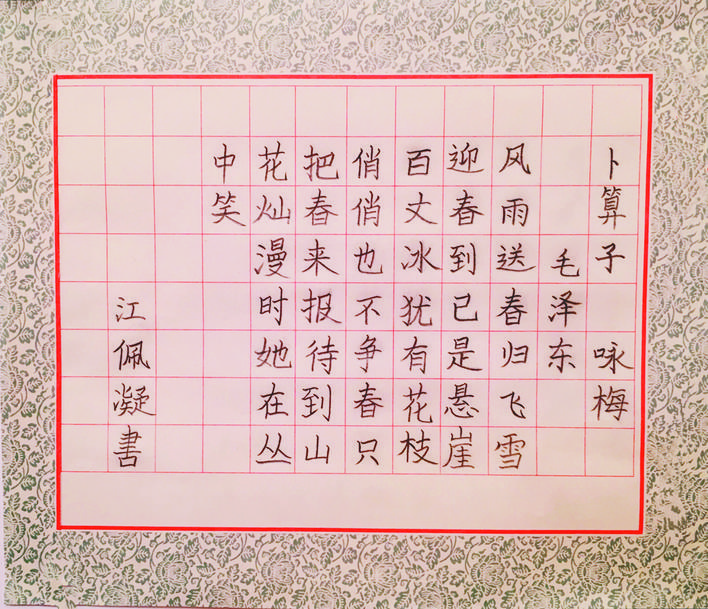 卜算子 咏梅
毛泽东
风雨送春归飞雪
迎春到已是悬崖
百丈冰犹有花枝
俏俏也不争春只
把春来报待到山
花灿漫时她在丛
中笑
江佩凝書